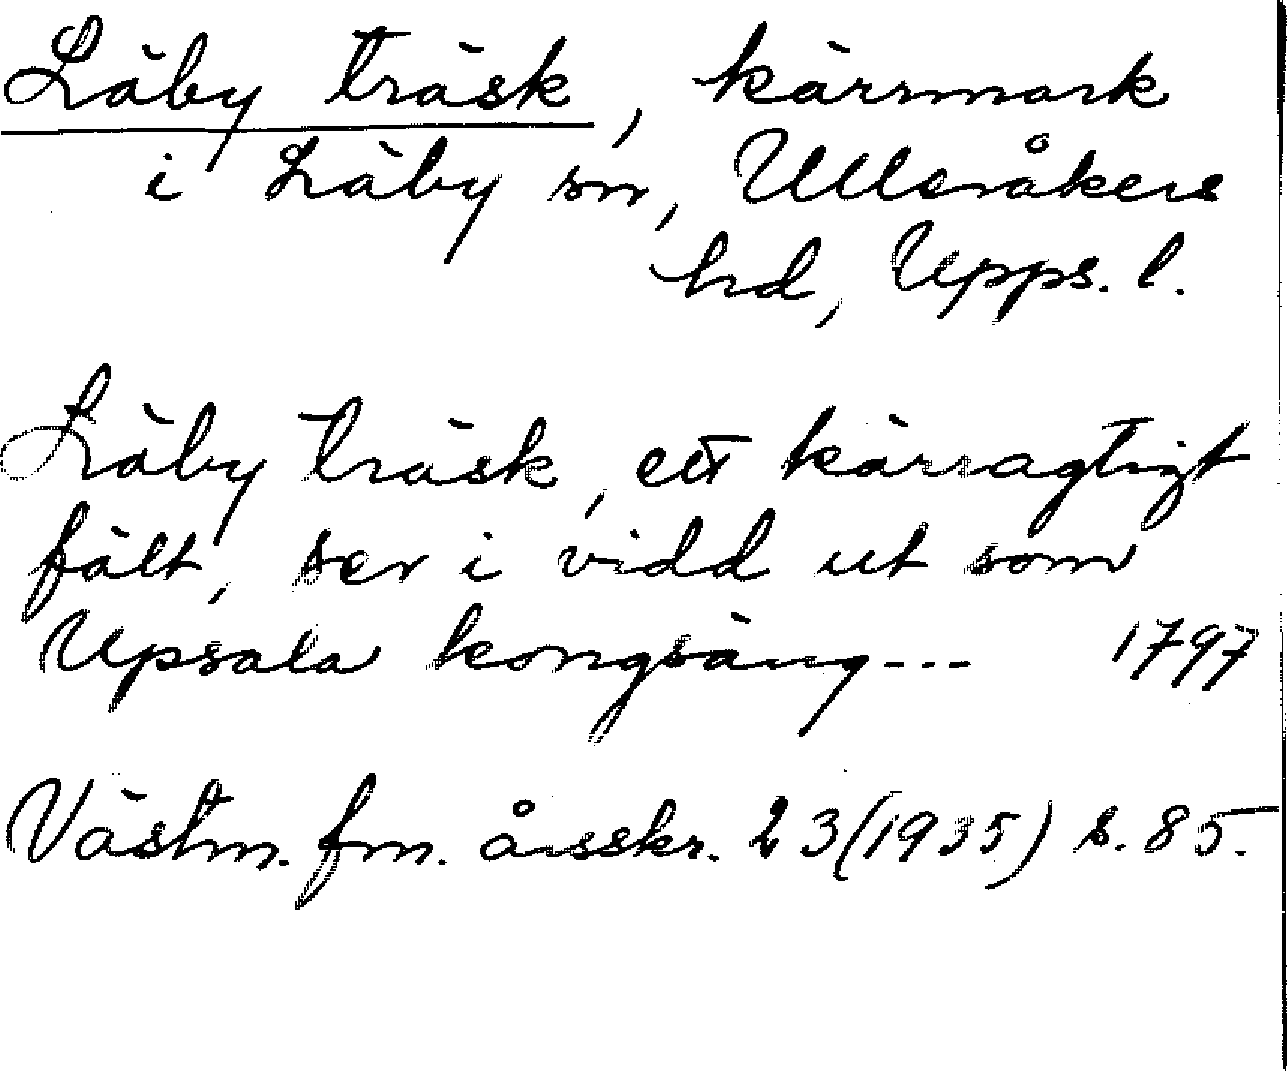 Läby träsk, kärrmark
i Läby sn, Ulleråkers
hd, Upps. l.
Läby träsk, ett kärragtigt
fält, ser i vidd ut som
Upsala kongsäng--- 1797
Västm. fm. årsskr. 23(1935) s. 85.